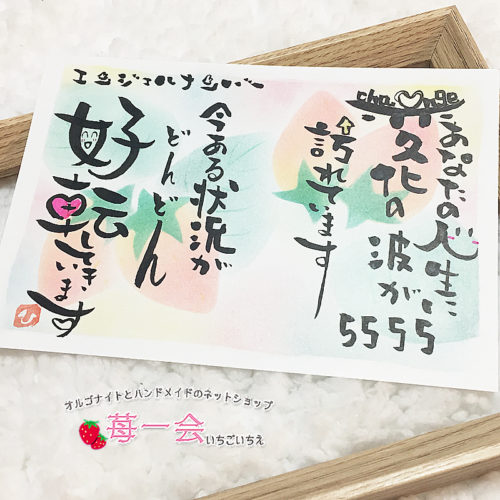 エンジェルナンバー
change
あなたの人生に
変化の波が
5555
訪れています
今ある状況が
どんどん
好転しています
ひ
オルゴナイトとハンドメイドのネットショップ
苺一会いちごいちえ